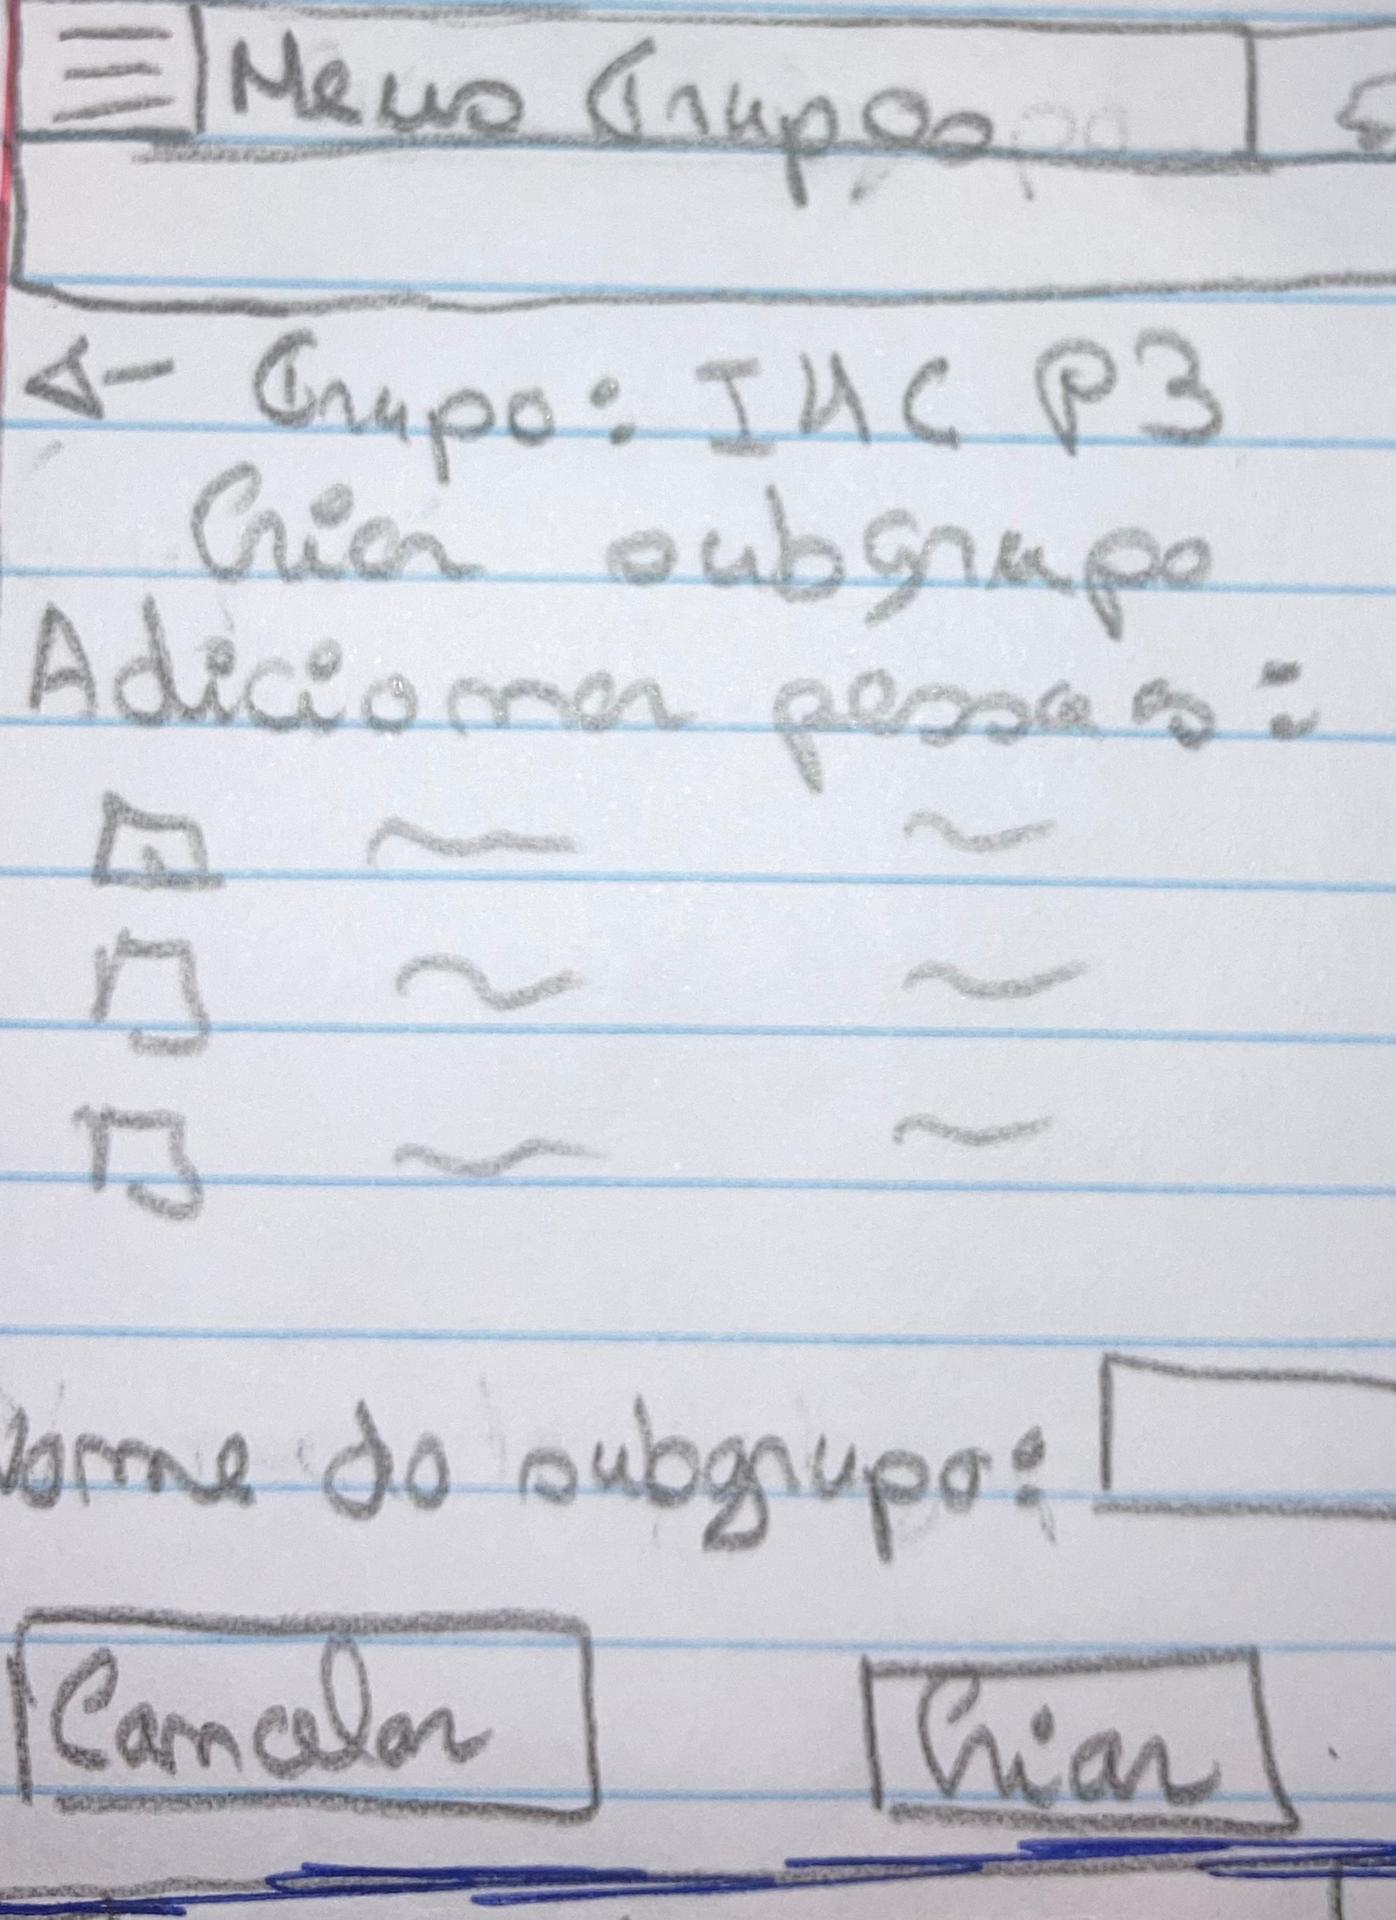 Meus Grupos
Grupo: IHC P3
Criar subgrupo
Adicionar pessoas:
Nome do subgrupo:
Cancelar
Criar